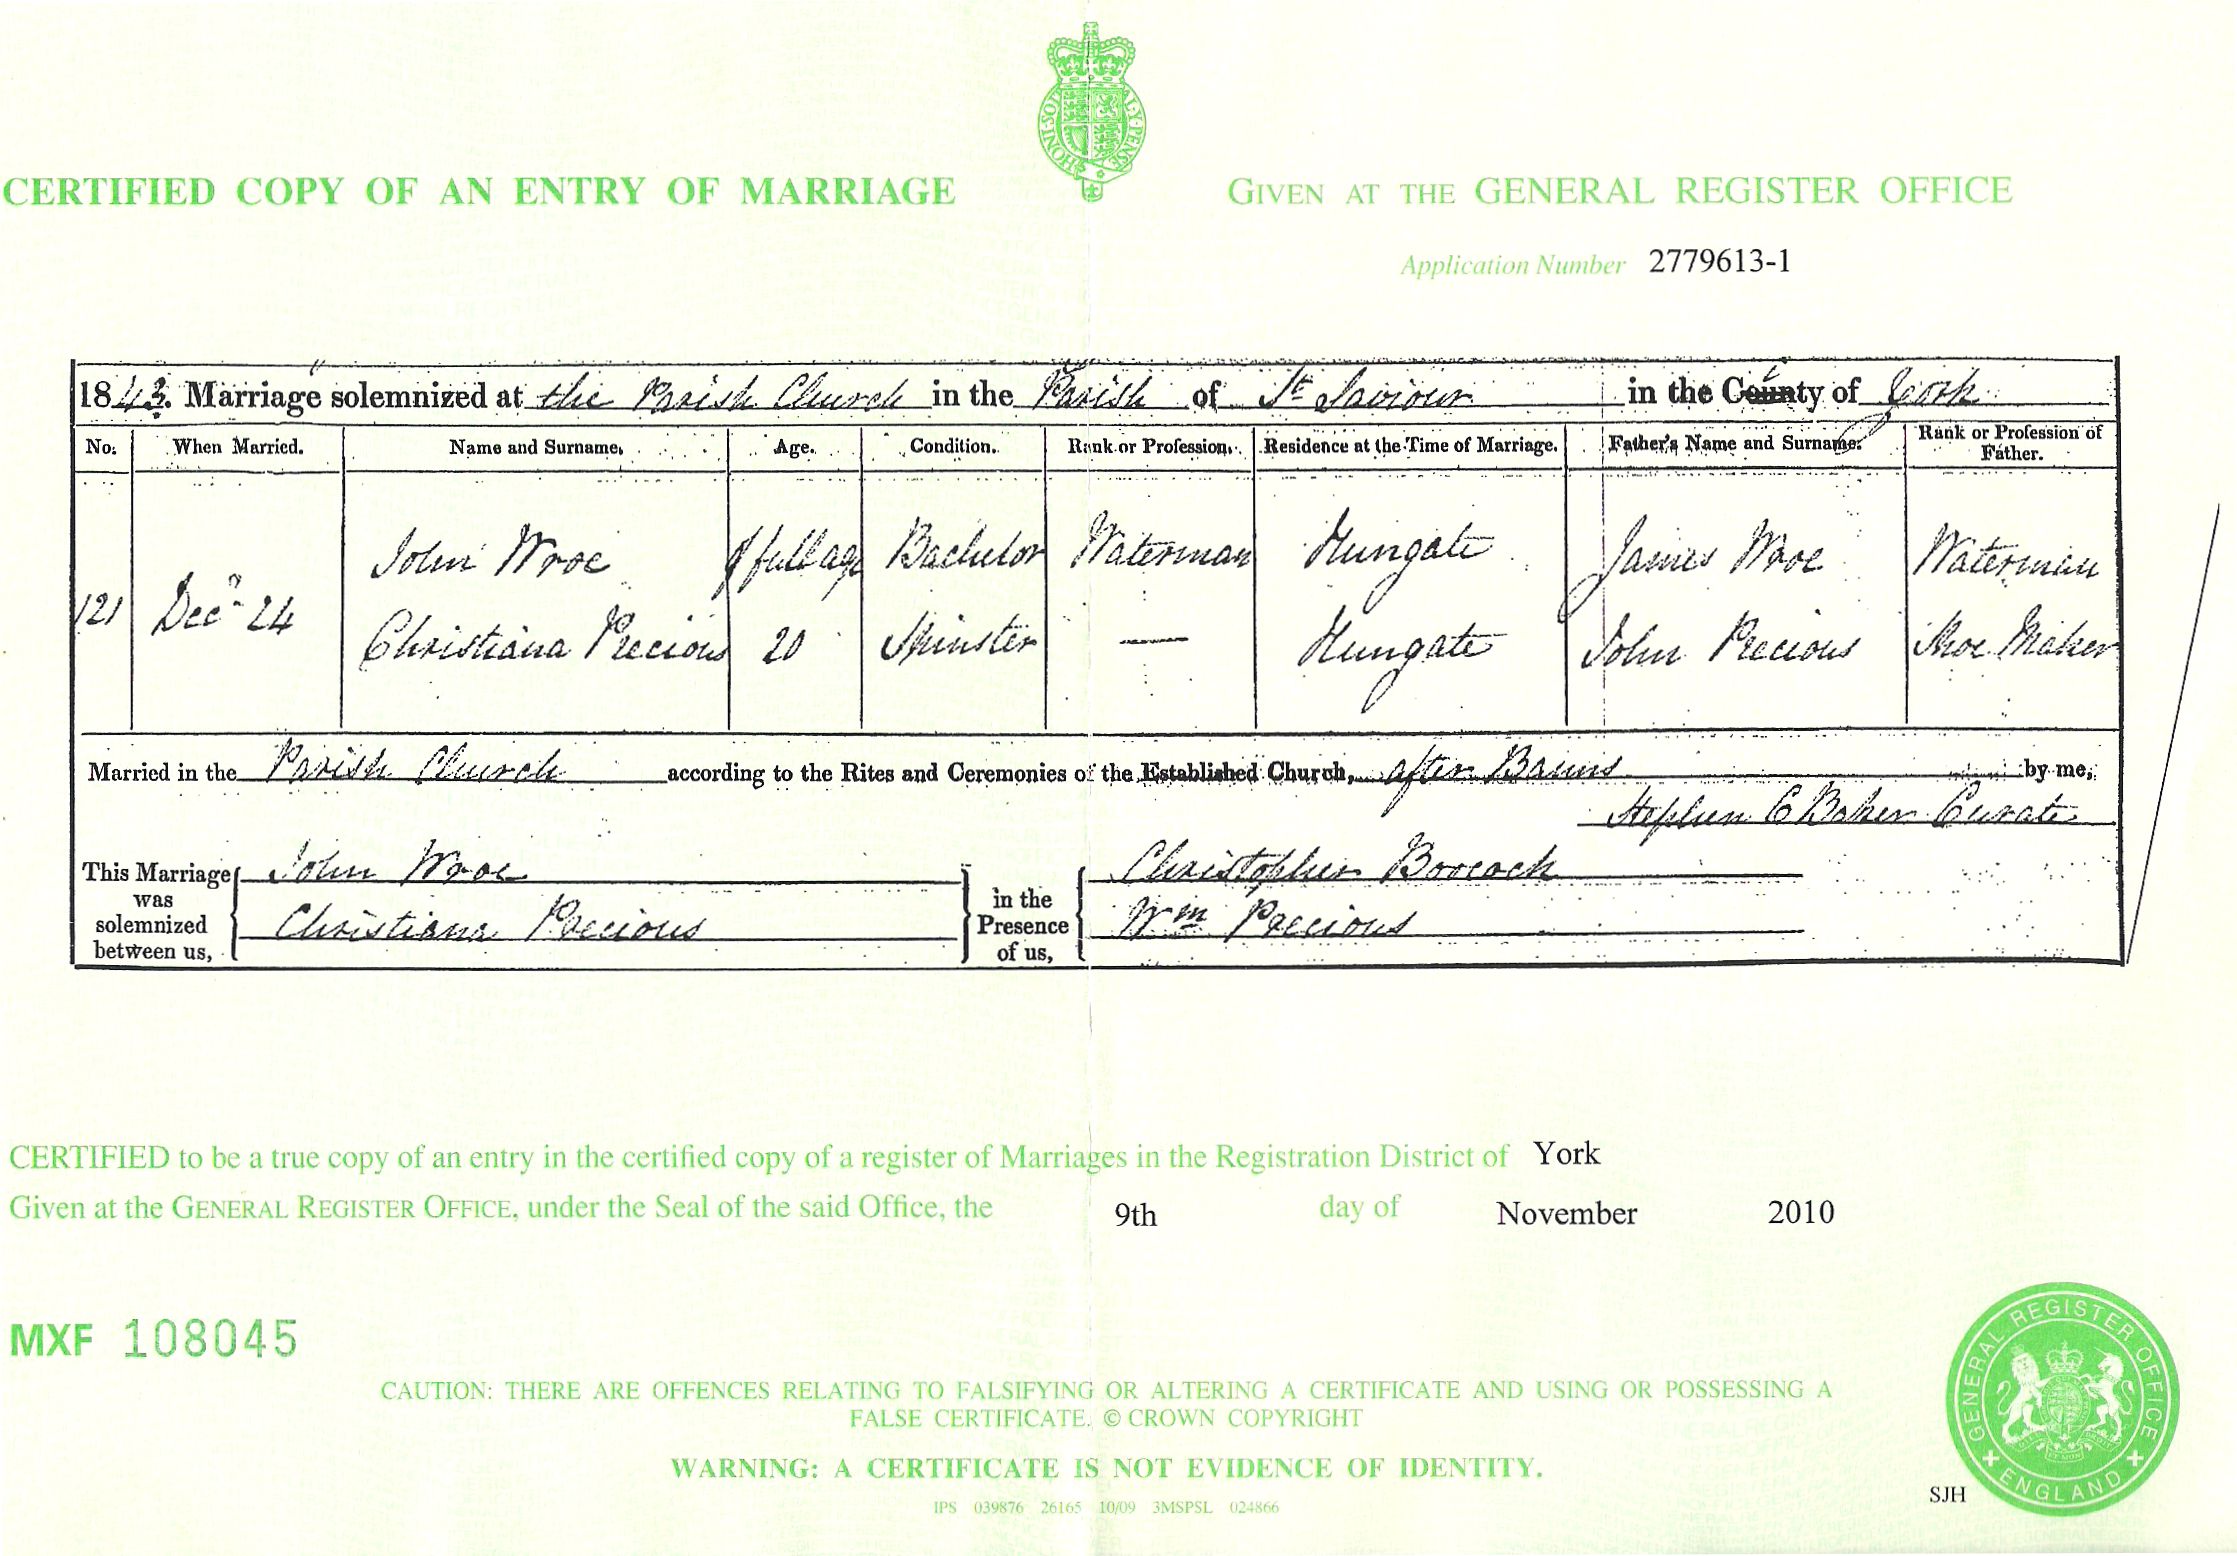 HONI SOIT QUI MAL Y PENSE
CERTIFIED COPY OF AN ENTRY OF MARRIAGE
GIVEN AT THE GENERAL REGISTER OFFICE
Application Number 2779613-1
1843. Marriage solemnized at the Parish Church in the Parish of St Saviour in the County of York
No. When Married. Name and Surname. Age. Condition. Rank or Profession. Residence at the Time of Marriage. Father's Name and Surname. Rank or Profession of Father.
John Wroe of full age Bachelor Waterman Hungate James Wroe Waterman
121 Decr 24
Christiana Precious 20 Spinster — Hungate John Precious Shoe Maker
Married in the Parish Church according to the Rites and Ceremonies of the Established Church, after Banns by me,
Stephen C Baker Curate
This Marriage was solemnized between us,
John Wroe
Christiana Precious
in the Presence of us,
Christopher Boocock
Wm Precious
CERTIFIED to be a true copy of an entry in the certified copy of a register of Marriages in the Registration District of York
Given at the GENERAL REGISTER OFFICE, under the Seal of the said Office, the 9th day of November 2010
MXF 108045
CAUTION: THERE ARE OFFENCES RELATING TO FALSIFYING OR ALTERING A CERTIFICATE AND USING OR POSSESSING A
FALSE CERTIFICATE. © CROWN COPYRIGHT
WARNING: A CERTIFICATE IS NOT EVIDENCE OF IDENTITY.
IPS 039876 26165 10/09 3MSPSL 024866
SJH
GENERAL REGISTER OFFICE
ENGLAND